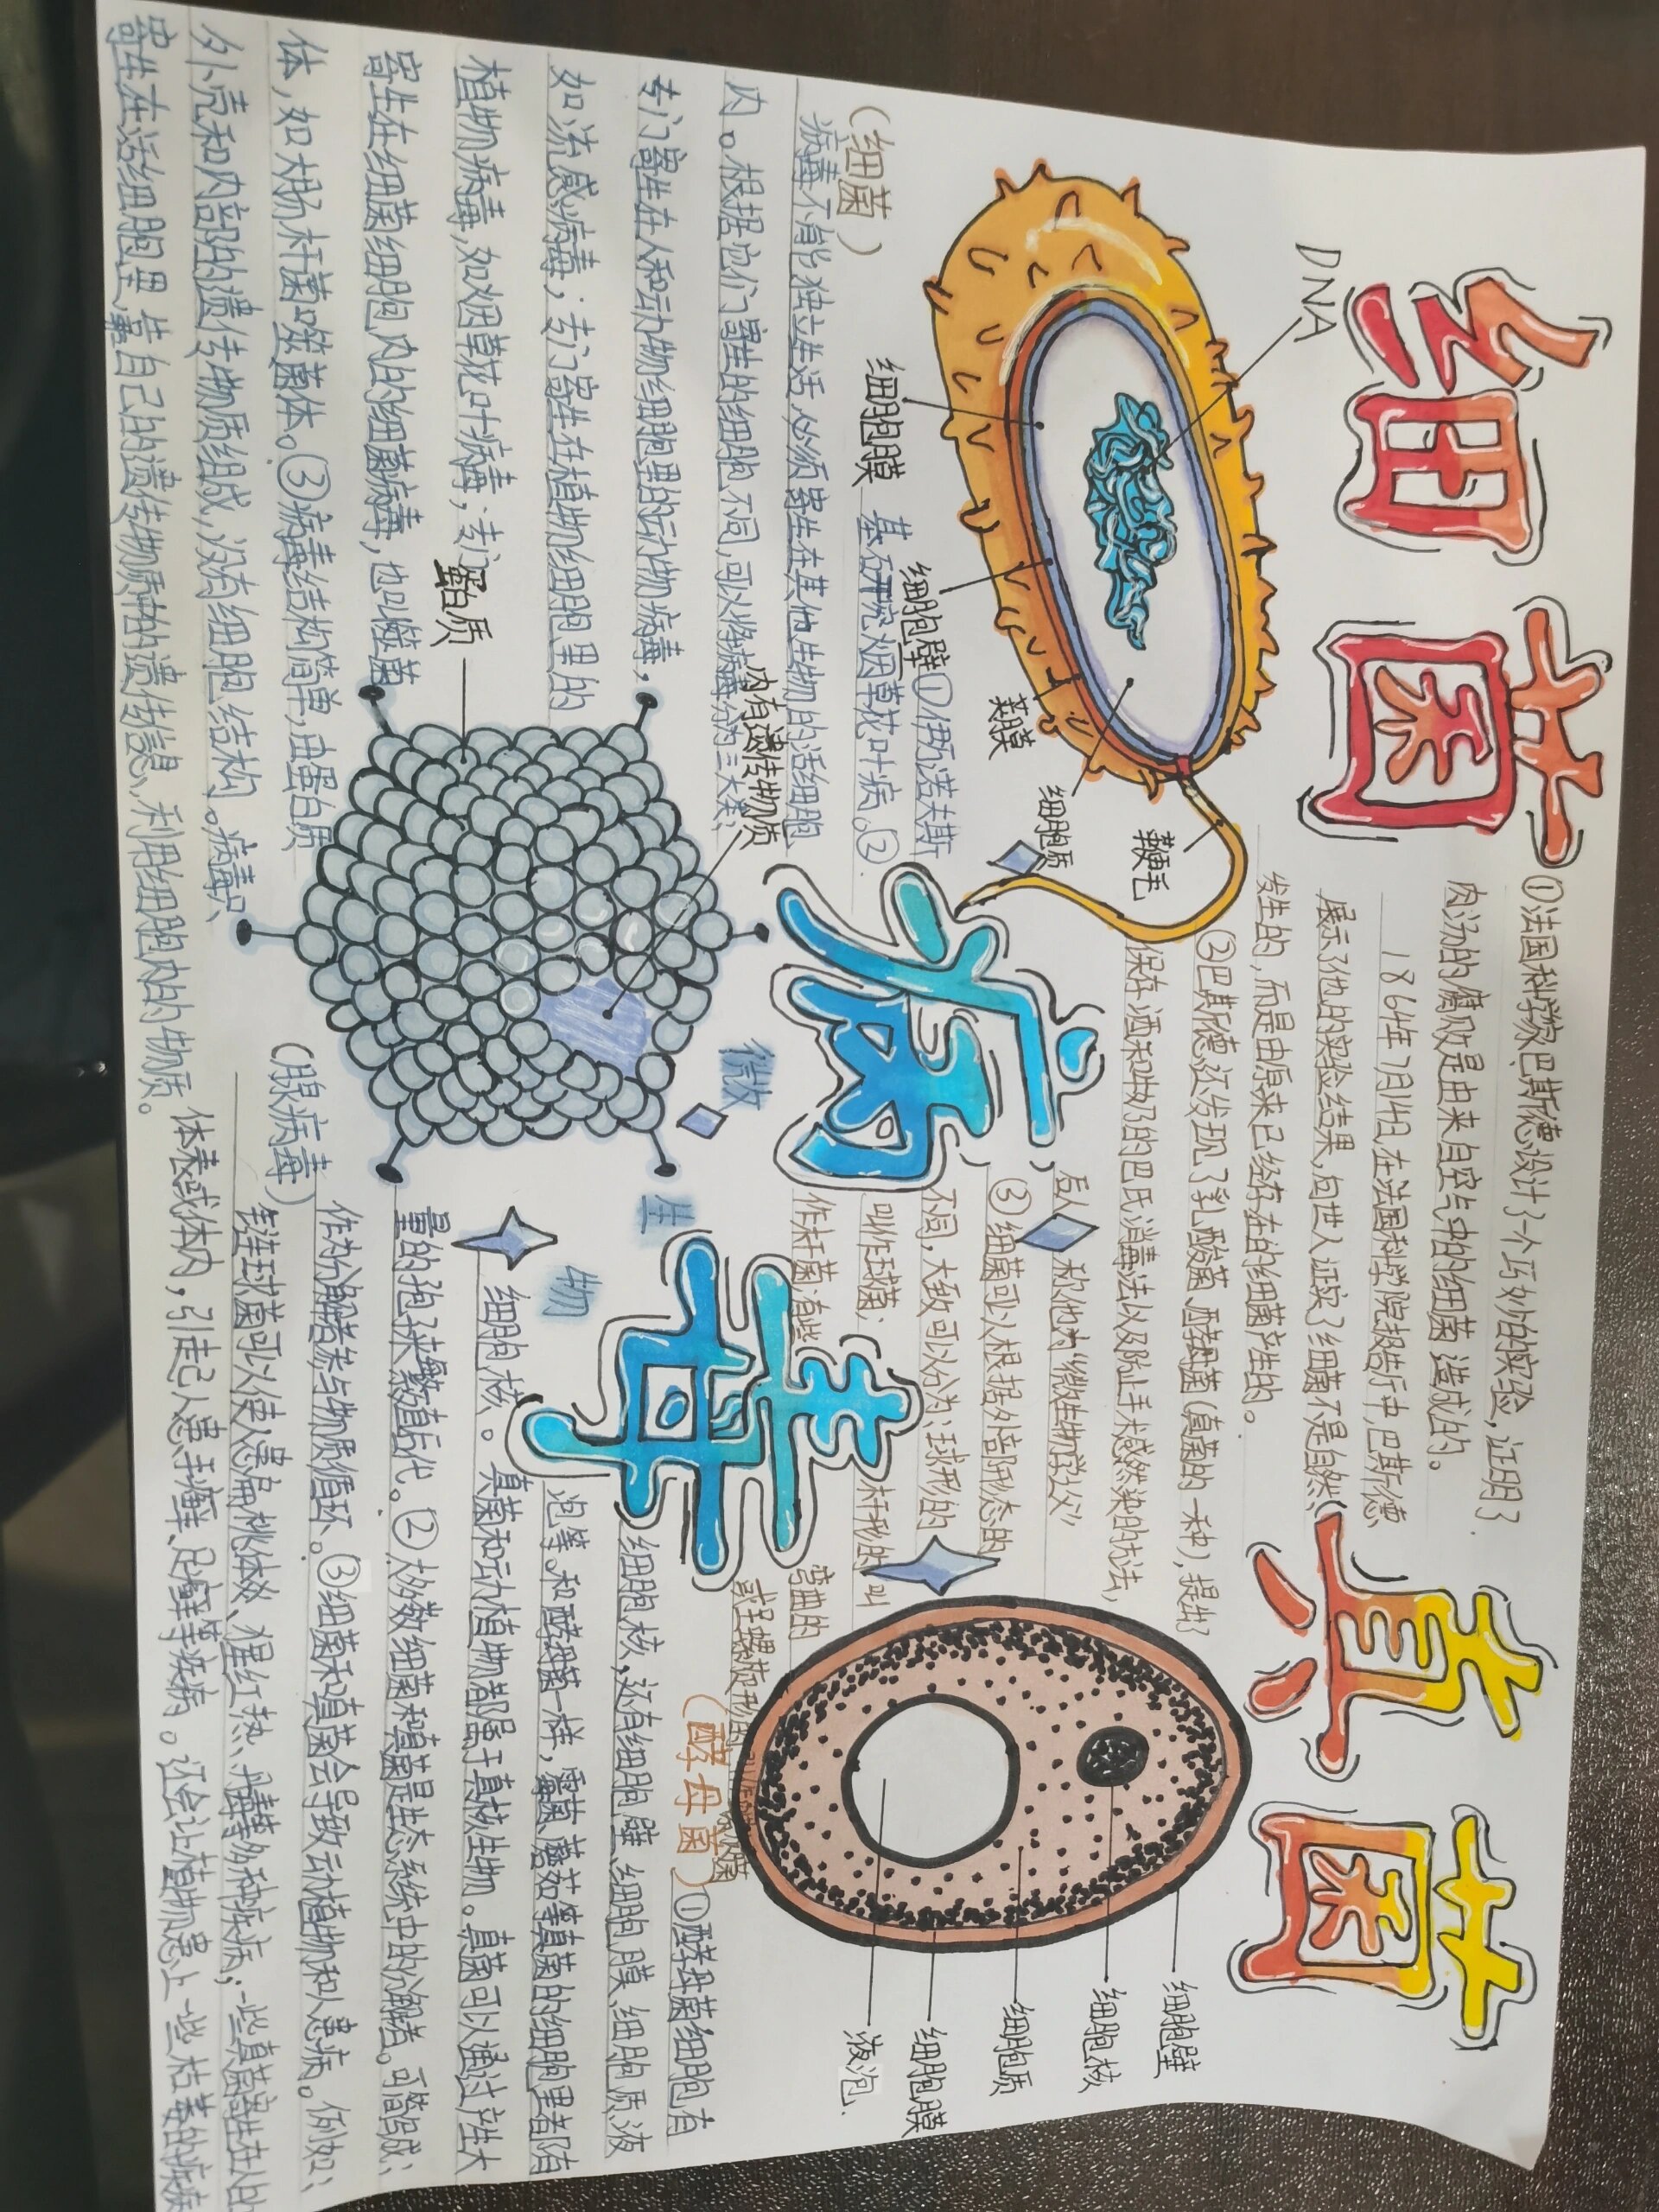 细菌
DNA
细胞膜
细胞壁
荚膜
细胞质
鞭毛
（细菌）
①法国科学家巴斯德设计了一个巧妙的实验，证明了
肉汤的腐败是由来自空气中的细菌造成的。
1864年7月14日，在法国科学院报告厅中，巴斯德
展示了他的实验结果，向世人证实了细菌不是自然
发生的，而是由原来已经存在的细菌产生的。
②巴斯德还发现了乳酸菌、酵母菌（真菌的一种），提出了
保存酒和牛奶的巴氏消毒法以及防止手术感染的方法，
后人称他为“微生物学之父”
③细菌可以根据外部形态的
不同，大致可以分为：球形的
叫作球菌；杆形的叫
作杆菌；有些弯曲的
或呈螺旋形
真菌
细胞壁
细胞核
细胞质
细胞膜
液泡.
（酵母菌）
①酵母菌细胞有
细胞核，还有细胞壁、细胞膜、细胞质、液
泡等。和酵母菌一样，霉菌、蘑菇等真菌的细胞里都有
细胞核。真菌和动植物都属于真核生物。真菌可以通过产生大
量的孢子来繁殖后代。②大多数细菌和真菌是生态系统中的分解者。可简写成：
作为分解者参与物质循环。③细菌和真菌会导致动植物和人患病。例如：
链球菌可以使人患扁桃体炎、猩红热、丹毒等多种疾病；一些真菌寄生在人的
体表或体内，引起人患手癣、足癣等疾病。还会让植物患上一些枯萎的疾病
病毒
微生物
①伊万诺夫斯
基研究烟草花叶病。②
病毒不能独立生活，必须寄生在其他生物的活细胞
内。根据它们寄生的细胞不同，可以将病毒分为三大类：
专门寄生在人和动物细胞里的动物病毒，
如流感病毒；专门寄生在植物细胞里的
植物病毒，如烟草花叶病毒；专门
寄生在细菌细胞内的细菌病毒，也叫噬菌
体，如大肠杆菌噬菌体。③病毒结构简单，由蛋白质
外壳和内部的遗传物质组成，没有细胞结构。病毒只
寄生在活细胞里，靠自己的遗传物质中的遗传信息，利用细胞内的物质。
蛋白质
内有遗传物质
（腺病毒）